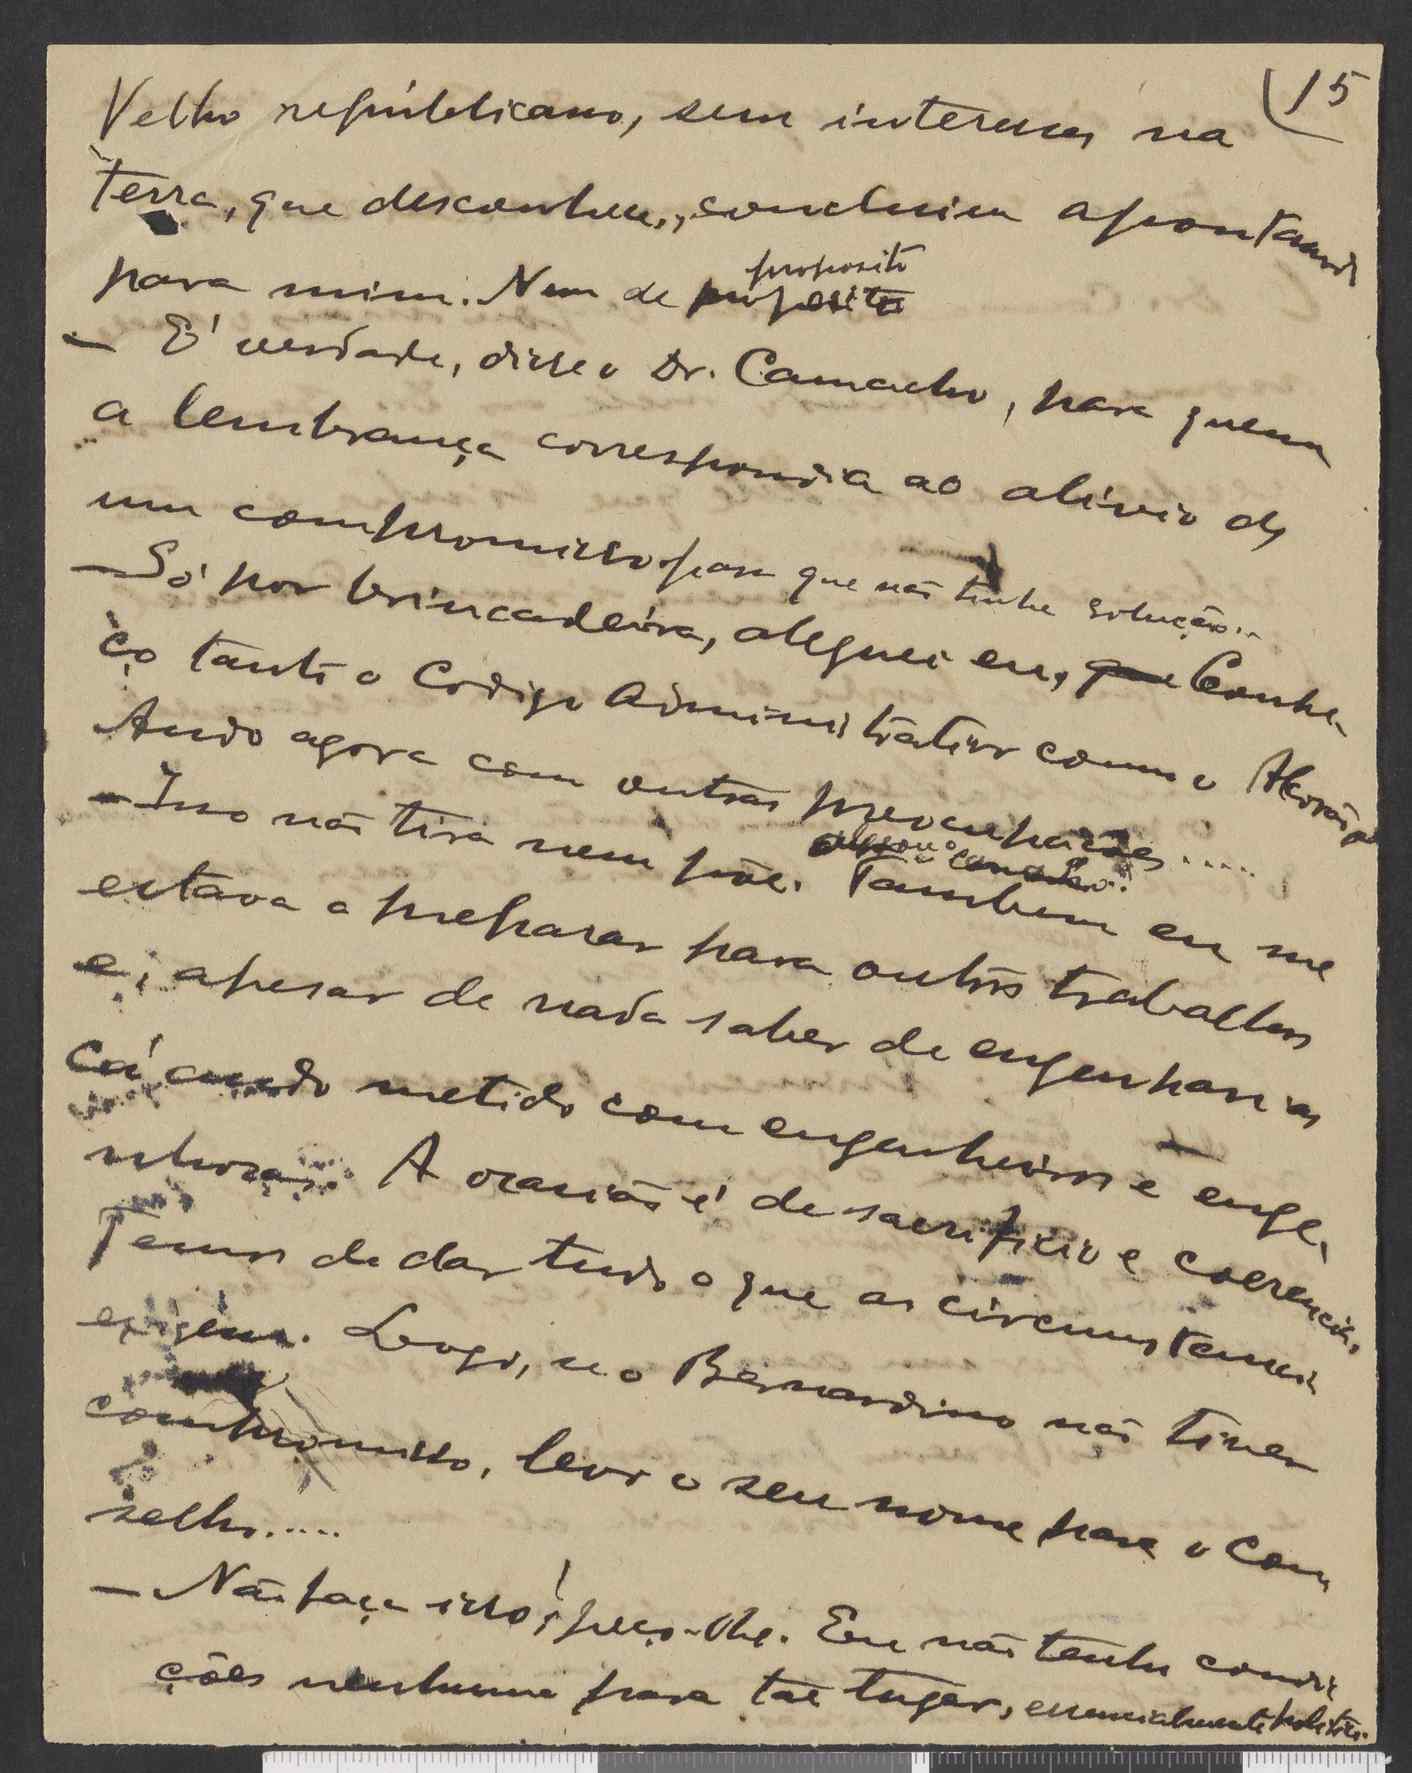 15
Velho repúblicano, sem interesses na
terra, que desconhece, concluiu apontando
para mim. Nem de proposito
proposito
— E' verdade, disse o Dr. Camacho, para quem
a lembrança correspondia ao alivio de
um compromisso para que não tinha solução..
— Só por brincadeira, aleguei eu, que Conhe-
ço tanto o Codigo Administrativo como o Alcorão
Ando agora com outras preocupações.....
— Isso não tira nem põe. Tambem eu me
estava a preparar para outros trabalhos
e, apesar de nada saber de engenharias
cá ando metido com engenheiros e enge-
nhocas. A ocasião é de sacrificio e coerencia,
Temos de dar tudo o que as circumstancias
exigem. Logo, se o Bernardino não tiver
compromisso, levo o seu nome para o Con
selho.....
— Não faça isso, peço-lhe! Eu não tenho condi
ções nenhumas para tal lugar, essencialmente politico.